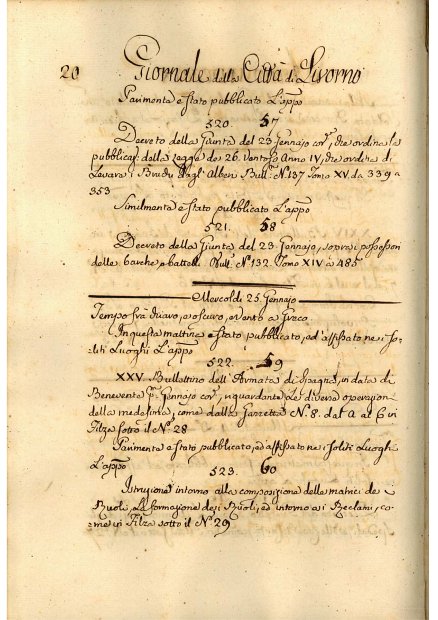 20 Giornale della Città di Livorno
Parimenta è stato pubblicato L'appo
520. 57
Decreto della Giunta del 23 Gennajo cor.e, che ordina la
pubblicaz.e della Legge de 26. Ventoso Anno IV, che ordina di
Levare i Bruchi dagl'Alberi Bull.o N.o 137 Tomo XV. da 339 a
353
Similmente è stato pubblicato L'appo
521. 58
Decreto della Giunta del 23. Gennajo, sopra i possessori
delle barche, e battelli. Bull.o N.o 132. Tomo XIV a 485
Mercoldi 25. Gennajo
Tempo frà chiaro, e oscuro, e vento a Greco.
In questa mattina è stato pubblicato, ed'affissato nei so-
liti Luoghi L'appo
522. 59
XXV. Bullettino dell'Armata di Spagna, in data di
Benevente Gennajo cor.e, riguardante Le diverse operazioni
della medesima, come dalla Gazzetta N.o 8. dal a al 6 in
Filza sotto il N.o 28
Parimenta è stato pubblicato, ed affissato nei soliti Luoghi
L'appo
523. 60
Istruzione intorno alla composizione delle matrici de
Ruoli, La formazione dei Ruoli, ed intorno a i Reclami, co-
me in Filza sotto il N.o 29